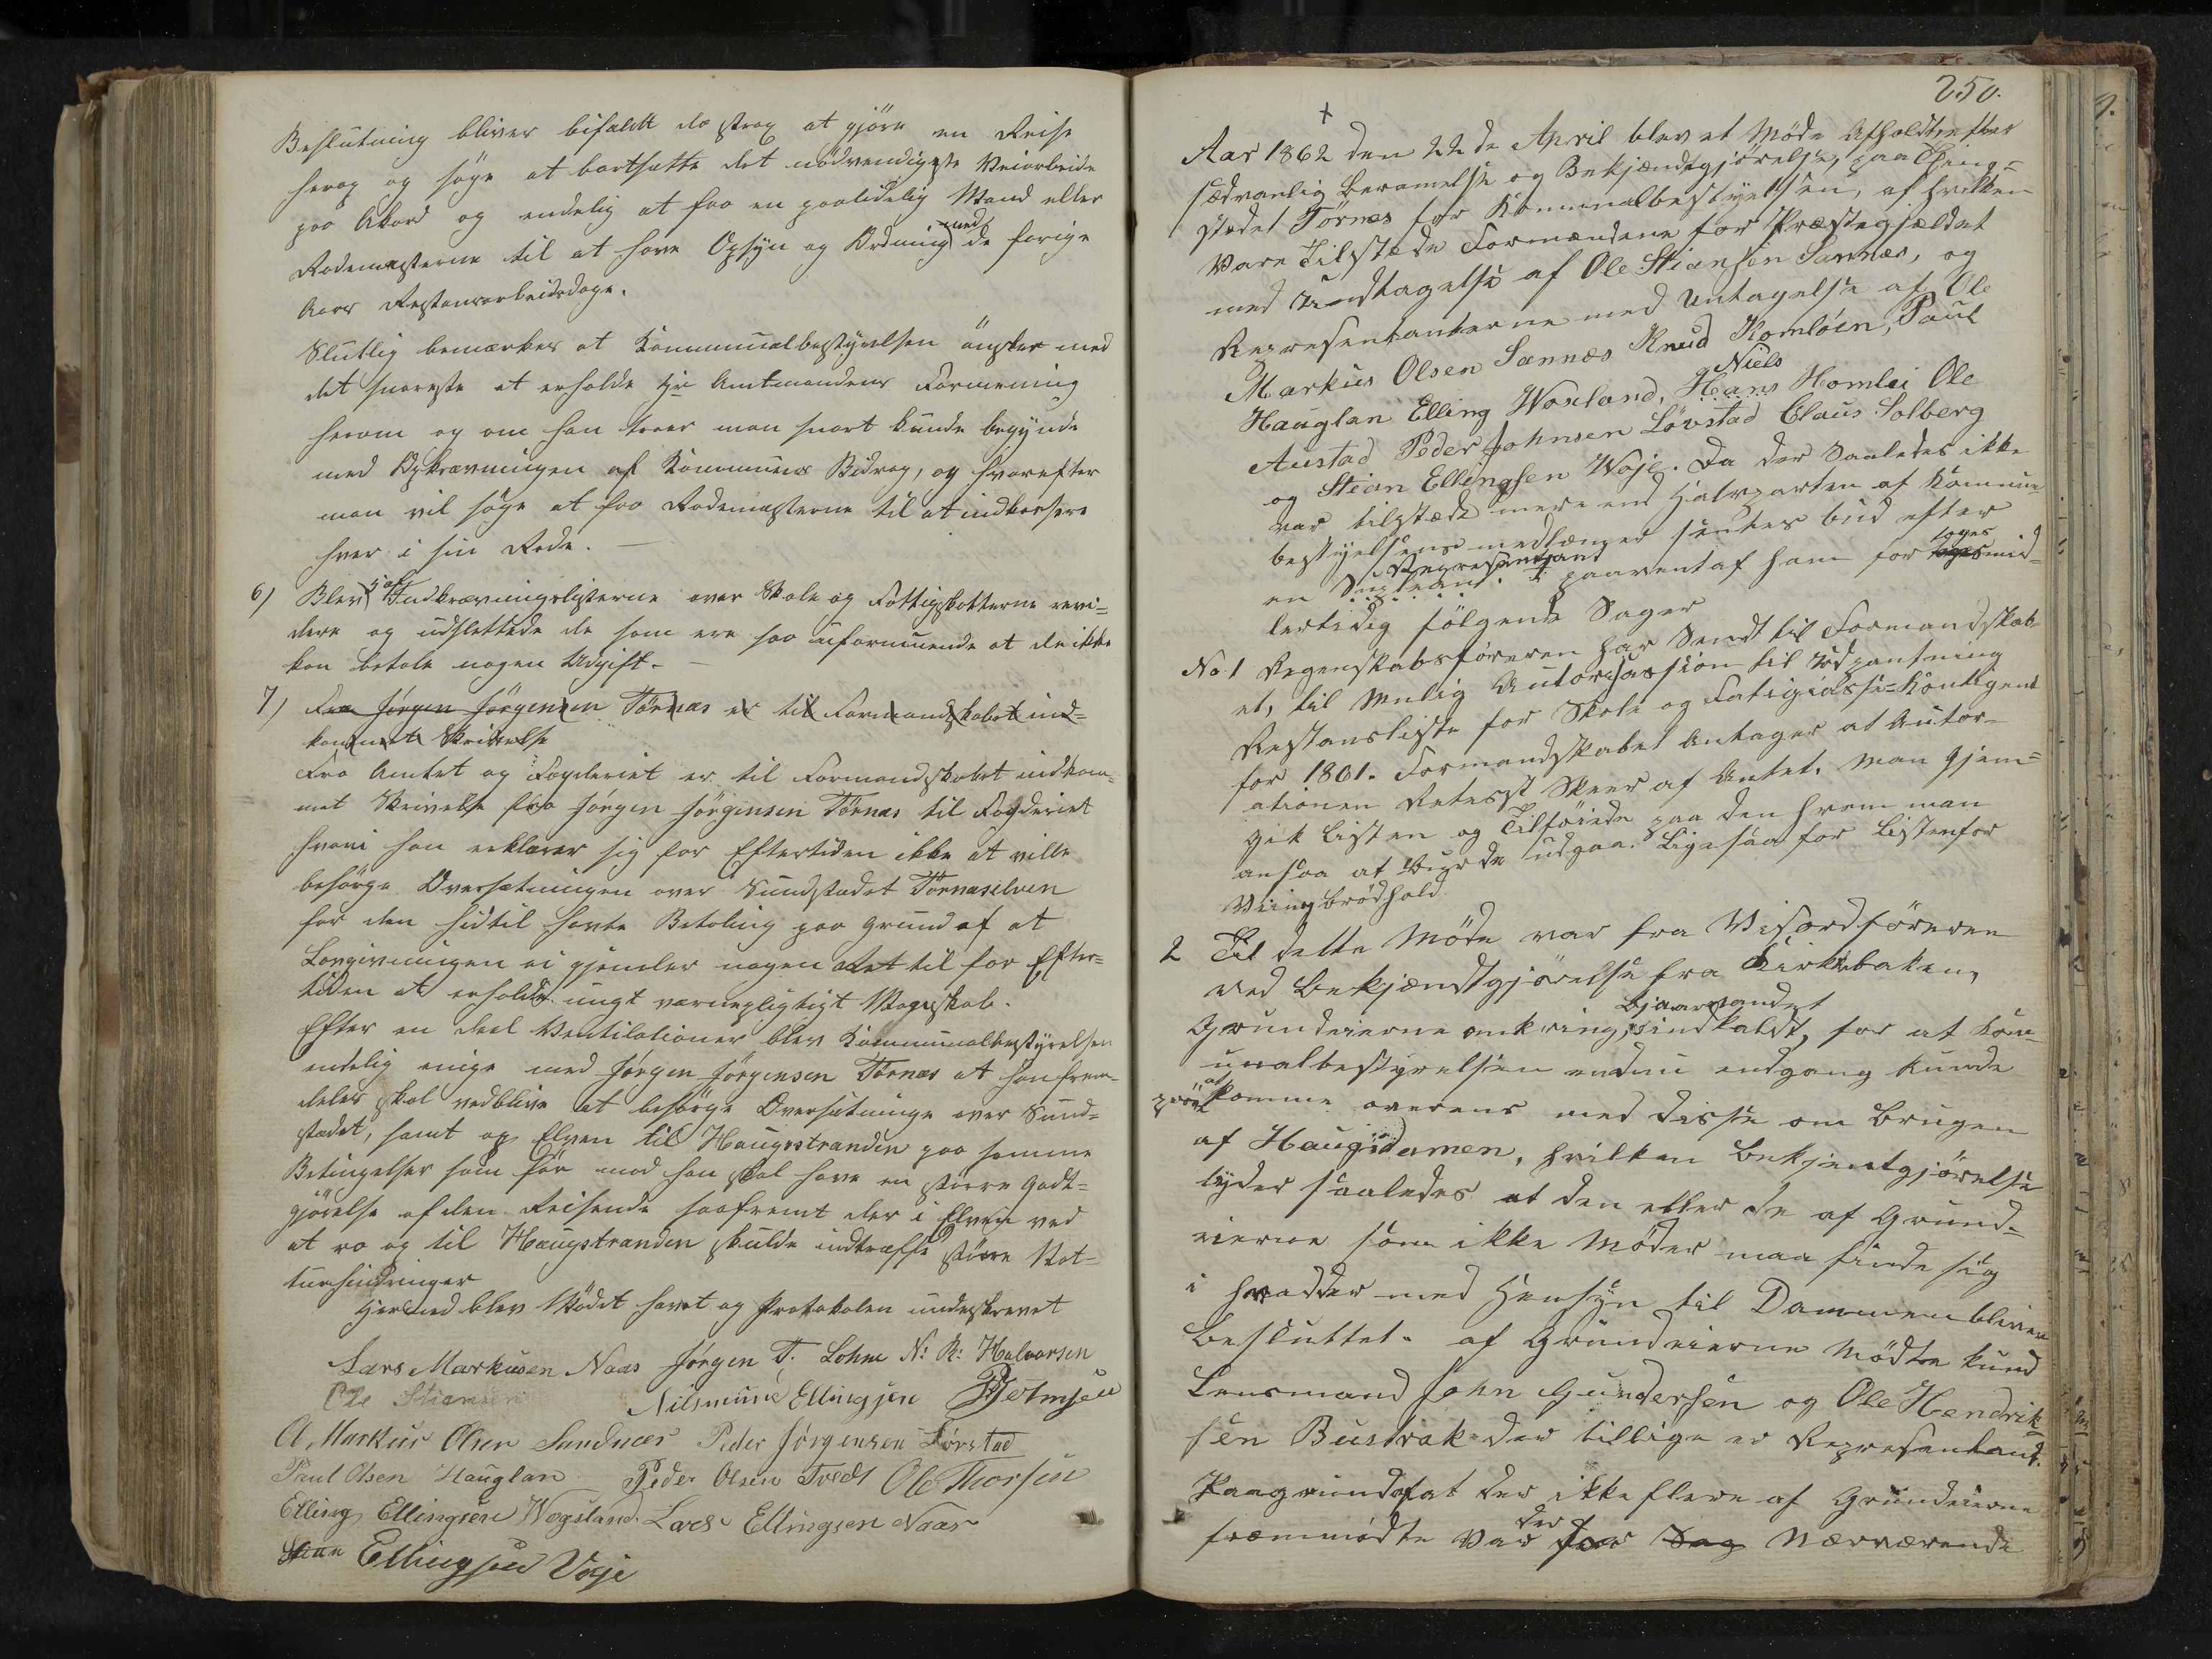 Beslutning bliver bifaldt da strax at gjöre en Reise
herop og söge at bortsætte det nödvendigste Veiarbeide
paa Akord og endelig at faa en paalidelig Mand eller
Rodemesterne til at have Opsyn og Ordning med de forige
Aars Restancearbeidsdage.
Slutlig bemærkes at Kommunalbestyrelsen önsker med
det snareste at erholde Hr Amtmandens Formening
herom og om han troer man snart kunde begynde
med Opkrævningen af Kommunens Bidrag, og hvorefter
man vil söge at faa Rodemesterne til at indkassere
hver i sin Rode. —
6) Blev Indkrævningslisterne over Skole og Fattigskatterne revi=
dere og udslettede de som ere saa uformuende at de ikke
kan betale nogen Udgift. —
7) Fra Jörgen Jörgensen Törnæs er til Formandskabet ind=
kommet Skrivelse
Fra Amtet og Fogderiet er til Formandskabet indkom=
met Skrivelse fra Jörgen Jörgensen Törnæs til Fogderiet
hvori han erklærer sig for Eftertiden ikke at ville
besörge Oversætningen over Sundstedet Törnæselven
for den hidtil havte Betaling paa Grund af at
Lovgivningen ei gjemler nogen Ret til for Efter=
tiden at erholde ungt værnepligtigt Mandskab.
Efter en deel Ventilationer blev Kommunalbestyrelsen
endelig enige med Jörgen Jörgensen Törnæs at han frem=
deles skal vedblive at besörge Oversætninge over Sund=
stædet, samt op Elven til Haugsstranden paa samme
Betingelser som för mod han skal have en större Godt=
gjörelse af den Reisende saafremt der i Elven ved
at ro op til Haugstranden skulde indtræffe större Nat=
turhindringer
Hermed blev Mödet hævet og Protokolen underskrevet
Lars Markusen Naas Jörgen T. Lohne N: R: Halvorsen
Ole Stiansen Nilsmund Ellingsen
Markus Olsen Sandnæs Peder Jörgensen Lövstad
Paul Olsen Hauglan Peder Olsen Tvedt Ole Thorsen
Elling Ellingsen Wogsland. Lars Ellingsen Naas
Stian Ellingsen Voje
250.
Aar 1862 den 22de April blev et Möde Afholdt efter
sædvanlig Berammelse og Bekjændtgjörelse, paa Thing=
stædet Törnæs for Kommunalbestyelsen, af hvilken
vare Tilstæde Formændene for Præstegjældet
med Undtagelse af Ole Stiansen Sannæs, og
Representanterne med Untagelse af Ole
Markus Olsen Sannæs Knud Komlöen, Paul
Hauglan Elling Woxland, Niels Hans Homlei Ole
Austad Peder Johnsen Lövstad Claus Solberg
og Stian Ellingsen Woje. Da der Saaledes ikke
var tilstæde mere end Halvparten af Kommun
bestyelsens medlæmer sendtes bud efter
en Supleant. Representant i paavent af ham for toges mid=
lertidig fölgende Sager
No. 1 Regenskabsföreren har Sendt til Formandskab=
et, til Mulig Autorisassion til Udpantning
Restansliste for Skole og Fatigkasse=Kontigent
for 1861. Formandskabet Antager at Autor=
ationen Retest Skeer af Amtet. Man Gjem=
gik Listen og Tilföiede paa den hvem man
ansaa at burde udgaa. Ligesaa for Listen for
Veiing brödhold
2 Til dette Möde var fra Viseordföreren
ved Bekjændtgjörelse fra Kirkebaken,
Grundeierne omkring Bjaavandet indkaldt, for at Kom=
unalbestyrelsen endnu engang kunde
pröve at komme overens med disse om Brugen
af Haugedamen, hvilken Bekjentgjörelse
lyder saaledes at den eller de af Grund=
eierne som ikke Möder maa finde sig
i hvad der med Hensyn til Dammen bliver
Besluttet. af Grundeierne Mödte kund
Lensmand John Gundersen og Ole Hendrik=
sen Bustrak der tillige er Representant.
Paagrund af at der ikke flere af Grundeierne
fremmödte Var der for Dag Nærværende